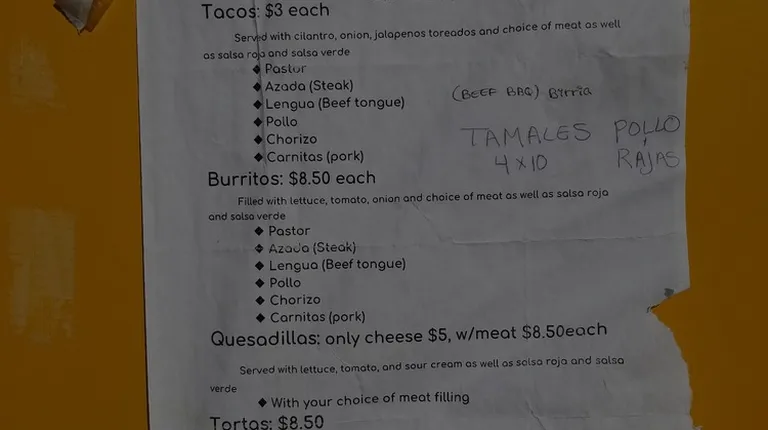 Tacos: $3 each
Served with cilantro, onion, jalapenos toreados and choice of meat as well
as salsa roja and salsa verde
◆ Pastor
◆ Azada (Steak)
◆ Lengua (Beef tongue)
(BEEF BBQ) Birria
◆ Pollo
TAMALES POLLO
◆ Chorizo
4 x 10 RAJAS
◆ Carnitas (pork)
Burritos: $8.50 each
Filled with lettuce, tomato, onion and choice of meat as well as salsa roja
and salsa verde
◆ Pastor
◆ Azada (Steak)
◆ Lengua (Beef tongue)
◆ Pollo
◆ Chorizo
◆ Carnitas (pork)
Quesadillas: only cheese $5, w/meat $8.50each
Served with lettuce, tomato, and sour cream as well as salsa roja and salsa
verde
◆ With your choice of meat filling
Tortas: $8.50